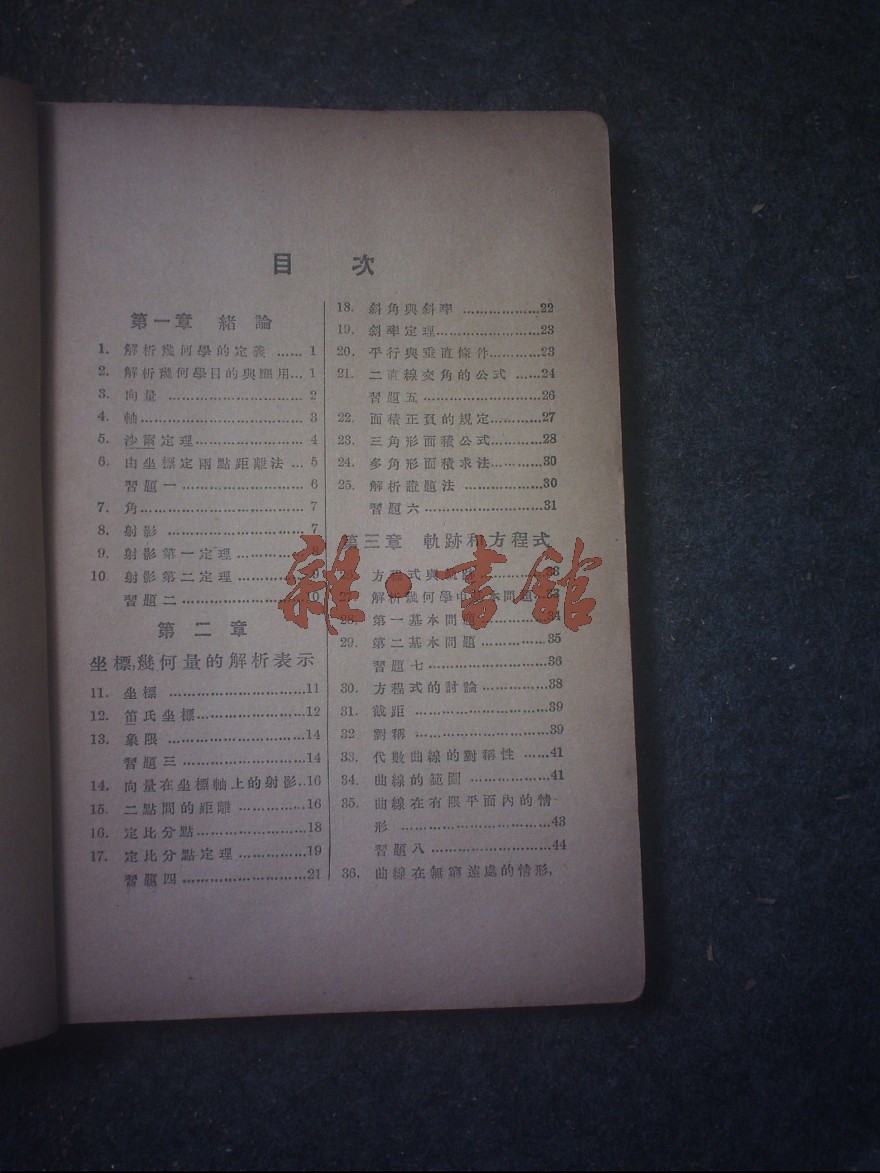 目 次
第一章 緒論
1. 解析幾何學的定義 ……1
2. 解析幾何學目的與應用…1
3. 向量 ………………2
4. 軸………………3
5. 沙爾定理………………4
6. 由坐標定兩點距離法 …5
習題一 ………………6
7. 角………………7
8. 射影 ………………7
9. 射影第一定理………………
10. 射影第二定理………………9
習題二 ………………10
第二章
坐標,幾何量的解析表示
11. 坐標 ………………11
12. 笛氏坐標………………12
13. 象限 ………………14
習題三 ………………14
14. 向量在坐標軸上的射影..16
15. 二點間的距離 ……………16
16. 定比分點………………18
17. 定比分點定理 ……………19
習題四………………21
18. 斜角與斜率 ………………22
19. 斜率定理………………23
20. 平行與垂直條件…………23
21. 二直線交角的公式 ……24
習題五 ………………26
22. 面積正負的規定…………27
23. 三角形面積公式…………28
24. 多角形面積求法…………30
25. 解析證題法 ………………30
習題六 ………………31
第三章 軌跡和方程式
方程式與
解析幾何學中 本問題
28. 第一基本問題 …………34
29. 第二基本問題 …………35
習題七 ………………36
30. 方程式的討論 ……………38
31. 截距 ………………39
32. 對稱 ………………39
33. 代數曲線的對稱性 ……41
34. 曲線的範圍 ………………41
35. 曲線在有限平面內的情
形 ………………43
習題八 ………………44
36. 曲線在無窮遠處的情形,
雜·書館